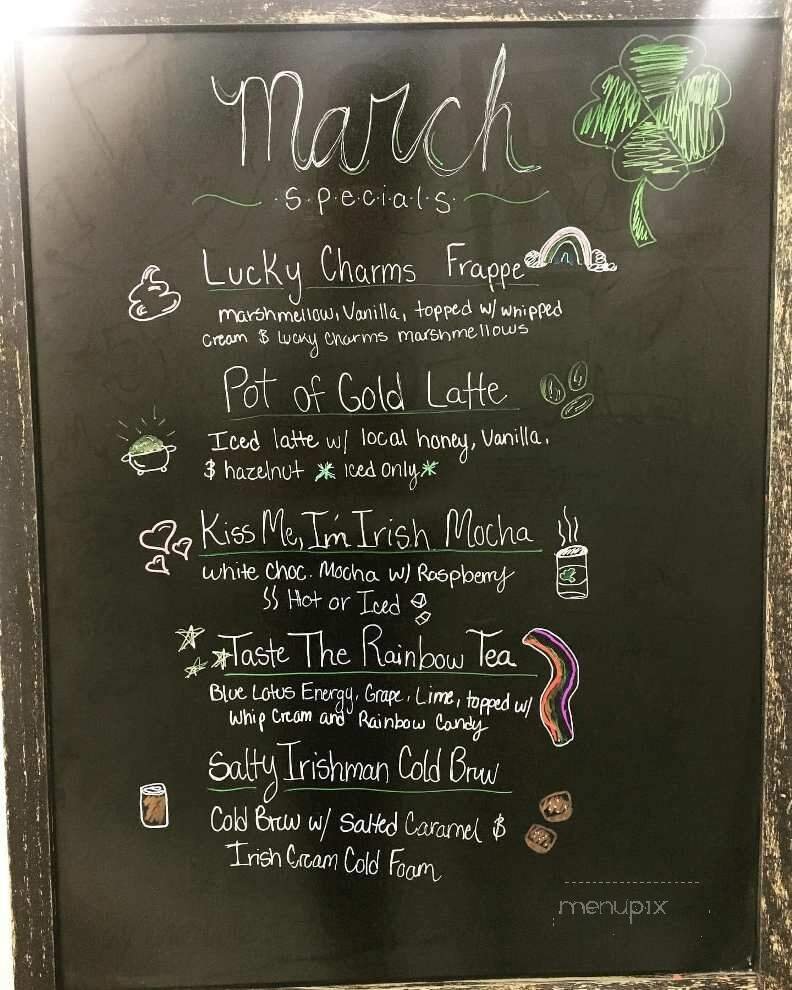 March
·S·p·e·c·i·a·l·s·
Lucky Charms Frappe
marshmellow, Vanilla, topped w/ whipped
cream & Lucky Charms marshmellows
Pot of Gold Latte
Iced latte w/ local honey, Vanilla,
& hazelnut * iced only *
Kiss Me, I'm Irish Mocha
White Choc. Mocha w/ Raspberry
Hot or Iced
Taste The Rainbow Tea
Blue Lotus Energy, Grape, Lime, topped w/
Whip Cream and Rainbow Candy
Salty Irishman Cold Brew
Cold Brew w/ Salted Caramel &
Irish Cream Cold Foam
menupix